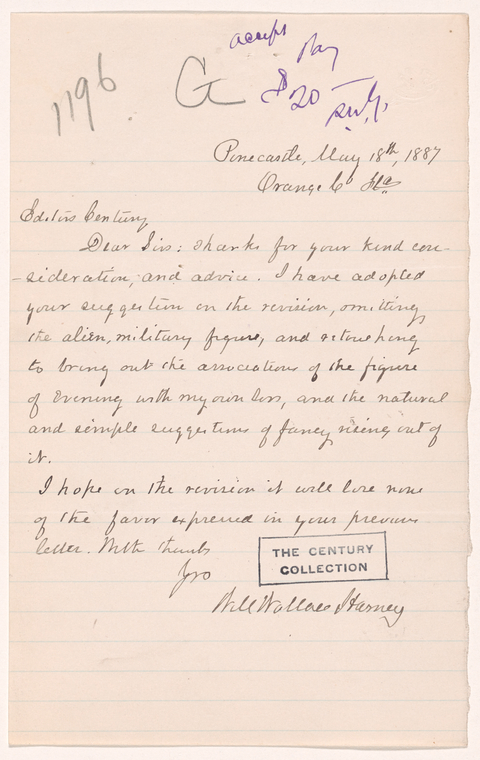 accept
Pay
1196
G
$20
R.W.G.
Pinecastle, May 18th, 1887
Orange Co Fla
Editors Century
Dear Sirs: Thanks for your kind con-
-sideration, and advice. I have adopted
your suggestion in the revision, omitting
the alien, military figure, and retouching
to bring out the associations of the figure
of Evening with my own loss, and the natural
and simple suggestions of fancy rising out of
it.
I hope on the revision it will lose none
of the favor expressed in your previous
letter. With thanks
Yrs
Will Wallace Harney
THE CENTURY
COLLECTION